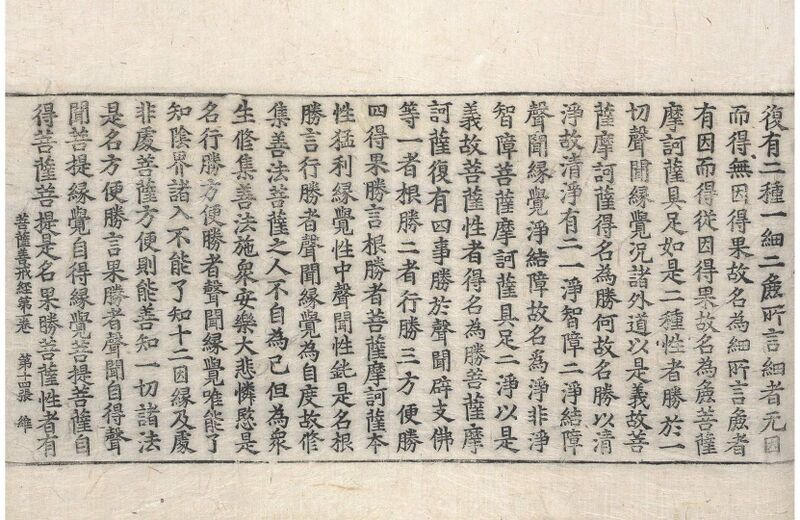 復有二種一細二麁所言細者无因
而得無因得果故名為細所言麁者
有因而得從因得果故名為麁菩薩
摩訶薩具足如是二種性者勝於一
切聲聞緣覺況諸外道以是義故菩
薩摩訶薩得名為勝何故名勝以清
淨故清淨有二一淨智障二淨結障
聲聞緣覺淨結障故名爲淨非淨
智障菩薩摩訶薩具足二淨以是
義故菩薩性者得名為勝菩薩摩
訶薩復有四事勝於聲聞辟支佛
等一者根勝二者行勝三方便勝
四得果勝言根勝者菩薩摩訶薩本
性猛利緣覺性中聲聞性鈍是名根
勝言行勝者聲聞緣覺為自度故修
集善法菩薩之人不自為己但為衆
生修集善法施衆安樂大悲憐愍是
名行勝方便勝者聲聞緣覺唯能了
知陰界諸入不能了知十二因緣及處
非處菩薩方便則能善知一切諸法
是名方便勝言果勝者聲聞自得聲
聞菩提緣覺自得緣覺菩提菩薩自
得菩薩菩提是名果勝菩薩性者有
菩薩善戒經第一卷 第十四張 維